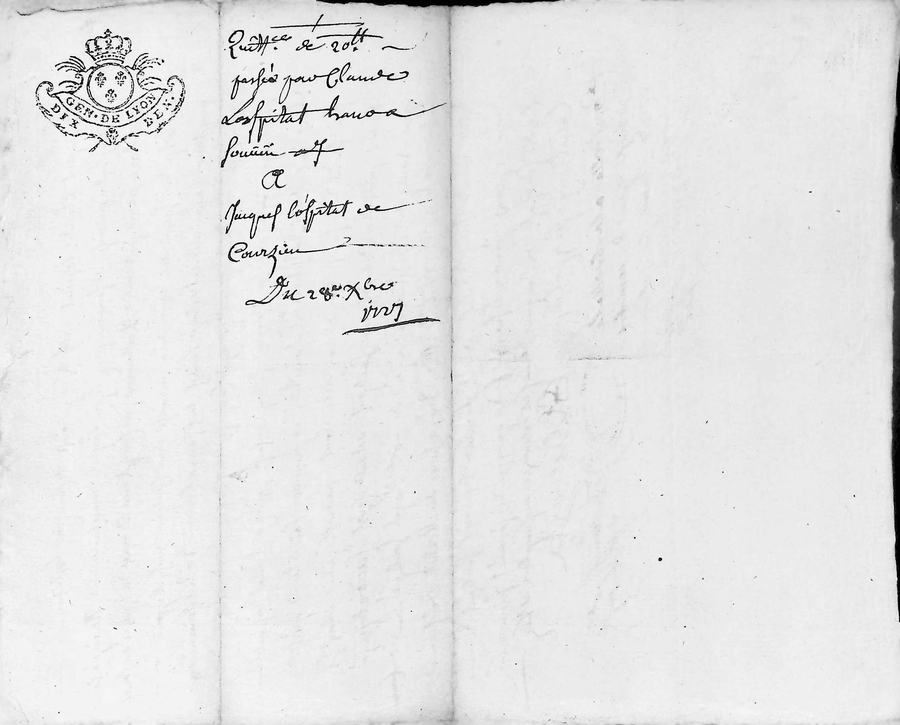 GEN. DE LYON
DIX DEN.
Quitt.ce de 20 lt
passée par Claude
Lospital
A
Jacques Lospital de
Courzieu
Du 28e Xbre
1727